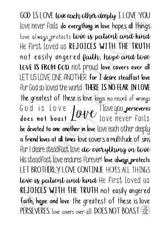 GOD IS LOVE love each other deeply I LOVE YOU
love never fails do everything in love hopes all things
always protects love is patient and kind
He first loved us REJOICES WITH THE TRUTH
not easily angered faith, hope and love
LOVE IS FROM GOD not proud love covers over all
LET US LOVE ONE ANOTHER for I desire steadfast love
For God so loved the world THERE IS NO FEAR IN LOVE
the greatest of these is love keeps no record of wrongs
God is love Love I love you, perseveres
does not boast love never fails
be devoted to one another in love love each other deeply
a friend loves at all times love covers a multitude of sins
do everything in love His steadfast love God is love
His steadfast love endures forever love always protects
LET BROTHERLY LOVE CONTINUE HOPES ALL THINGS
love is patient and kind He first loved us
REJOICES WITH THE TRUTH not easily angered
faith, hope and love the greatest of these is love
PERSEVERES love covers over all DOES NOT BOAST